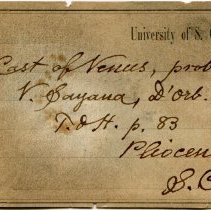 University of S. C
Cast of Venus, prob
V. Cayana, d'Orb.
T. & H. p. 83
Pliocen
S. C